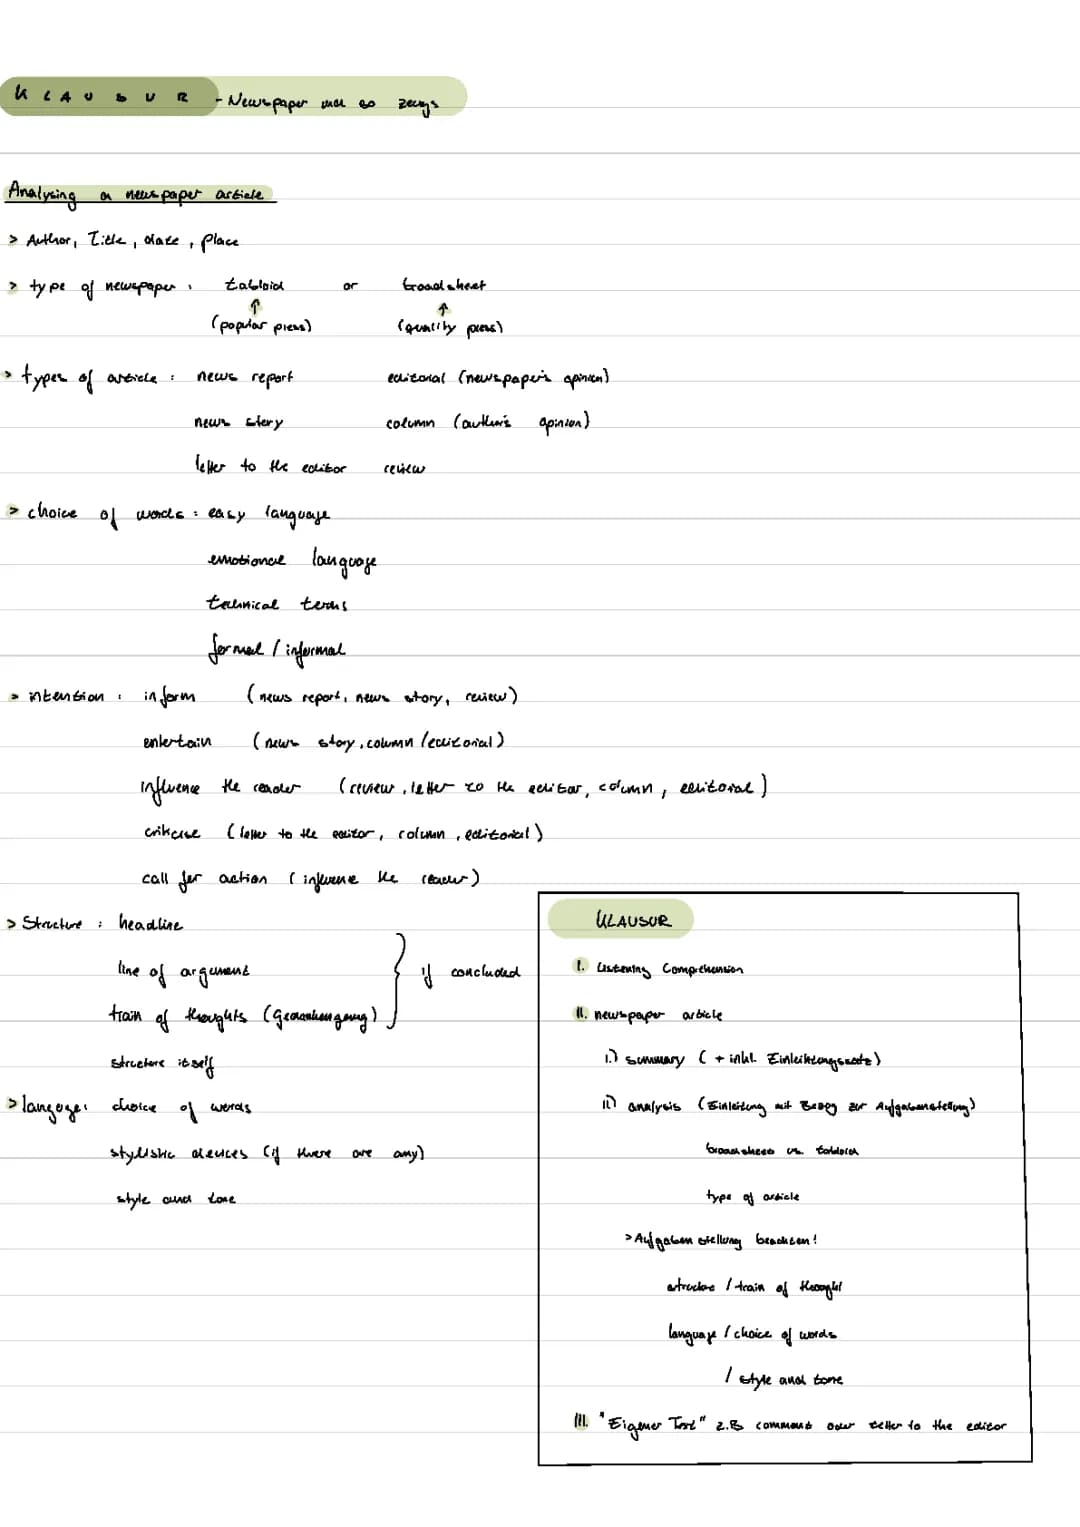 KLAUSUR - Newspaper und so zeugs
Analysing a newspaper article
> Author, Title, date, place
> type of newspaper: tabloid or broadsheet
↑ ↑
(popular press) (quality press)
> types of article: news report editorial (newspaper's opinion)
news story column (author's opinion)
letter to the editor review
> choice of words: easy language
emotional language
technical terms
formal / informal
> intention: inform (news report, news story, review)
entertain (news story, column / editorial)
influence the reader (review, letter to the editor, column, editorial)
criticise (letter to the editor, column, editorial)
call for action (influence the reader)
> Structure: headline
line of argument
train of thoughts (Gedankengang) } if concluded
structure itself
> langage: choice of words
stylistic devices (if there are any)
style and tone
KLAUSUR
I. Listening Comprehension
II. newspaper article
i.) summary (+ inkl. Einleitungssatz)
ii) analysis (Einleitung mit Bezug zur Aufgabenstellung)
broadsheet vs. tabloid
type of article
> Aufgabenstellung beachten!
structure / train of thought
language / choice of words
/ style and tone
III. "Eigener Text" z.B comment oder letter to the editor